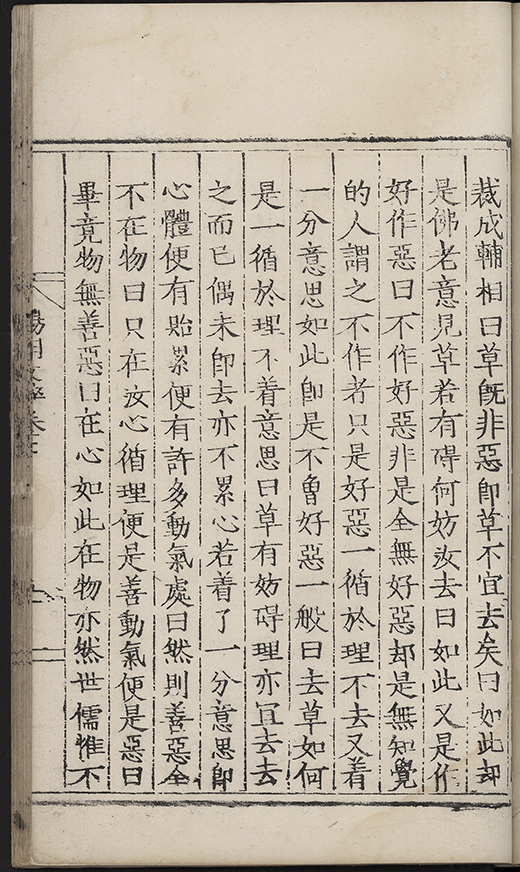 裁成輔相曰草旣非惡卽草不宜去矣曰如此却
是佛老意見草若有碍何妨汝去曰如此又是作
好作惡曰不作好惡非是全無好惡却是無知覺
的人謂之不作者只是好惡一循於理不去又着
一分意思如此卽是不曾好惡一般曰去草如何
是一循於理不着意思曰草有妨碍理亦宜去去
之而已偶未卽去亦不累心若着了一分意思卽
心體便有貽累便有許多動氣處曰然則善惡全
不在物曰只在汝心循理便是善動氣便是惡曰
畢竟物無善惡曰在心如此在物亦然世儒惟不
陽明文